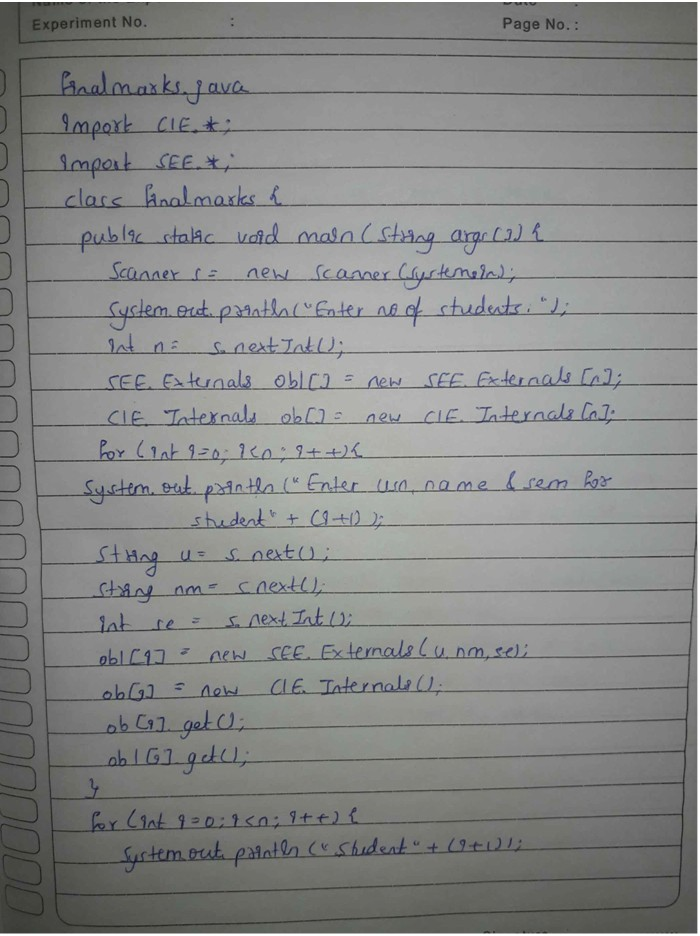 Experiment No. :
Page No. :
Finalmarks.java
Import CIE.*;
Import SEE.*;
class Finalmarks {
public static void main(String args[]) {
Scanner s = new Scanner(System.in);
System.out.println("Enter no of students: ");
int n = s.nextInt();
SEE.Externals ob1[] = new SEE.Externals[n];
CIE.Internals ob[] = new CIE.Internals[n];
for (int i=0; i<n; i++){
System.out.println("Enter usn, name & sem for
student" + (i+1));
String u = s.next();
String nm = s.next();
int se = s.nextInt();
ob1[i] = new SEE.Externals(u, nm, se);
ob[i] = new CIE.Internals();
ob[i].get();
ob1[i].get();
}
for (int i=0; i<n; i++) {
System.out.println("Student" + (i+1));